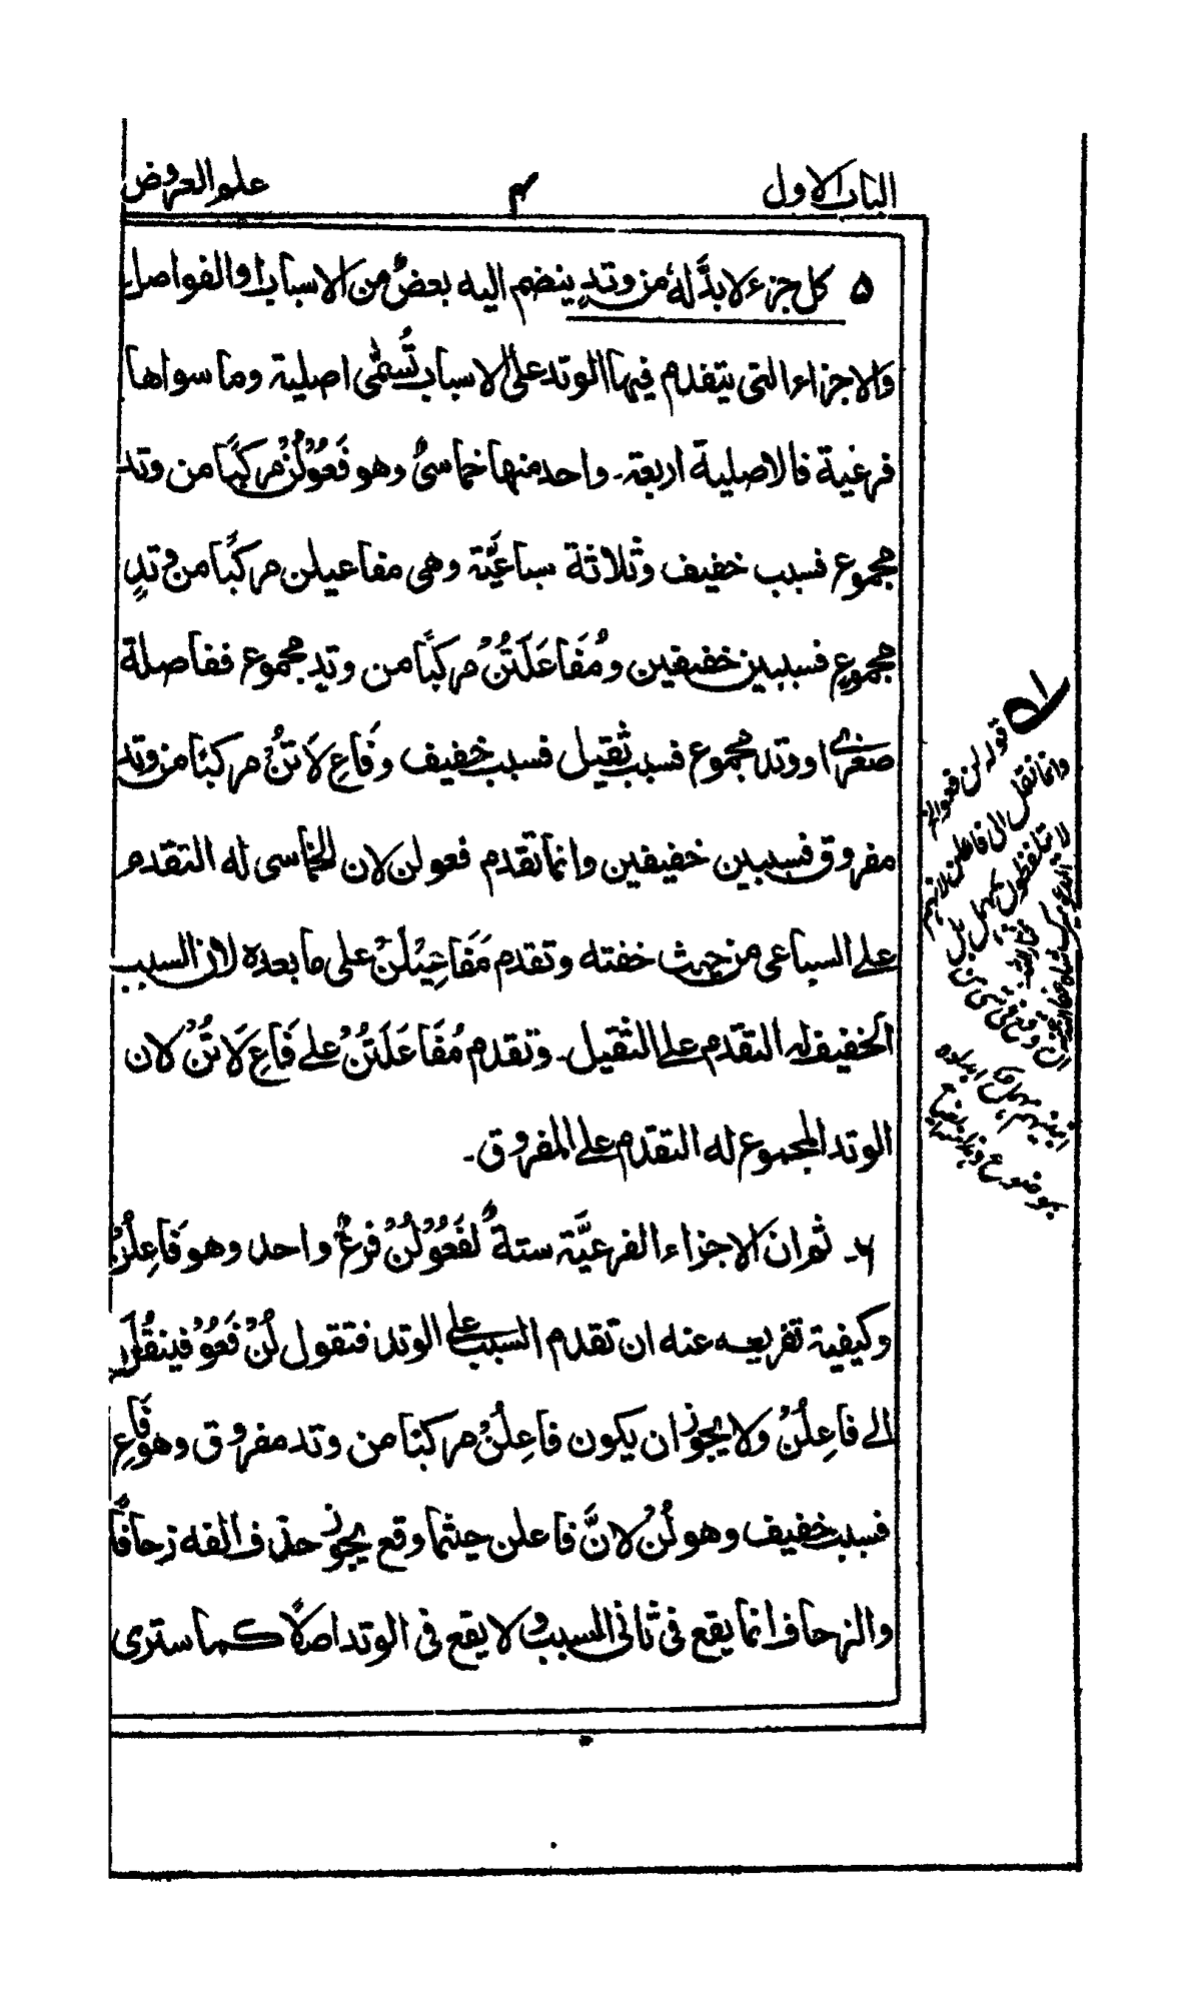 الباب الاول ۴ علم العروض
۵ كل جزء لا بدَّ لهٗ من وتدٍ ينضم اليه بعضٌ من الاسباب والفواصل
والاجزاء التى يتقدم فيها الوتد على الاسباب تُسمّٰى اصلية وما سواها
فرعية فالاصلية اربعة۔ واحد منها خماسىٌ وهو فَعُوْلُنْ مركبًا من وتد
مجموع فسبب خفيف وثلاثة سباعيَّة وهى مفاعيلن مركبًا من وتدٍ
مجموعٍ فسببين خفيفين ومُفَاعَلَتُنْ مركبًا من وتدٍ مجموع ففاصلة
صغرى او وتد مجموع فسبب ثقيل فسبب خفيف وفَاعِ لَاتُنْ مركبًا من وتد
مفروق فسببين خفيفين وانما تقدم فعولن لان الخماسى له التقدم
على السباعى من حيث خفته وتقدم مَفَاعِيْلُنْ على ما بعده لان السبب
الخفيف له التقدّم على الثقيل۔ وتقدم مُفَاعَلَتُنْ على فَاعِ لَاتُنْ لان
الوتد المجموع له التقدم على المفروق۔
۶۔ ثم ان الاجزاء الفرعيَّة ستةٌ لفَعُوْلُنْ فرعٌ واحد وهو فَاعِلُنْ
وكيفية تفريعه عنه ان تقدم السبب على الوتد فتقول لُنْ فَعُوْ فينقُل
الى فاعِلُنْ ولا يجوز ان يكون فاعِلُنْ مركبًا من وتد مفروق وهو فَاعِ
فسبب خفيف وهو لُنْ لانَّ فاعلن حيثما وقع يجوز حذف الفه زحافًا
والزحاف انما يقع فى ثانى السبب ولا يقع فى الوتد اصلًا كما سترى
قوله لن فعو الخ
وانما نقل الى فاعلن لانهم
لا يتلفظون بمهمل